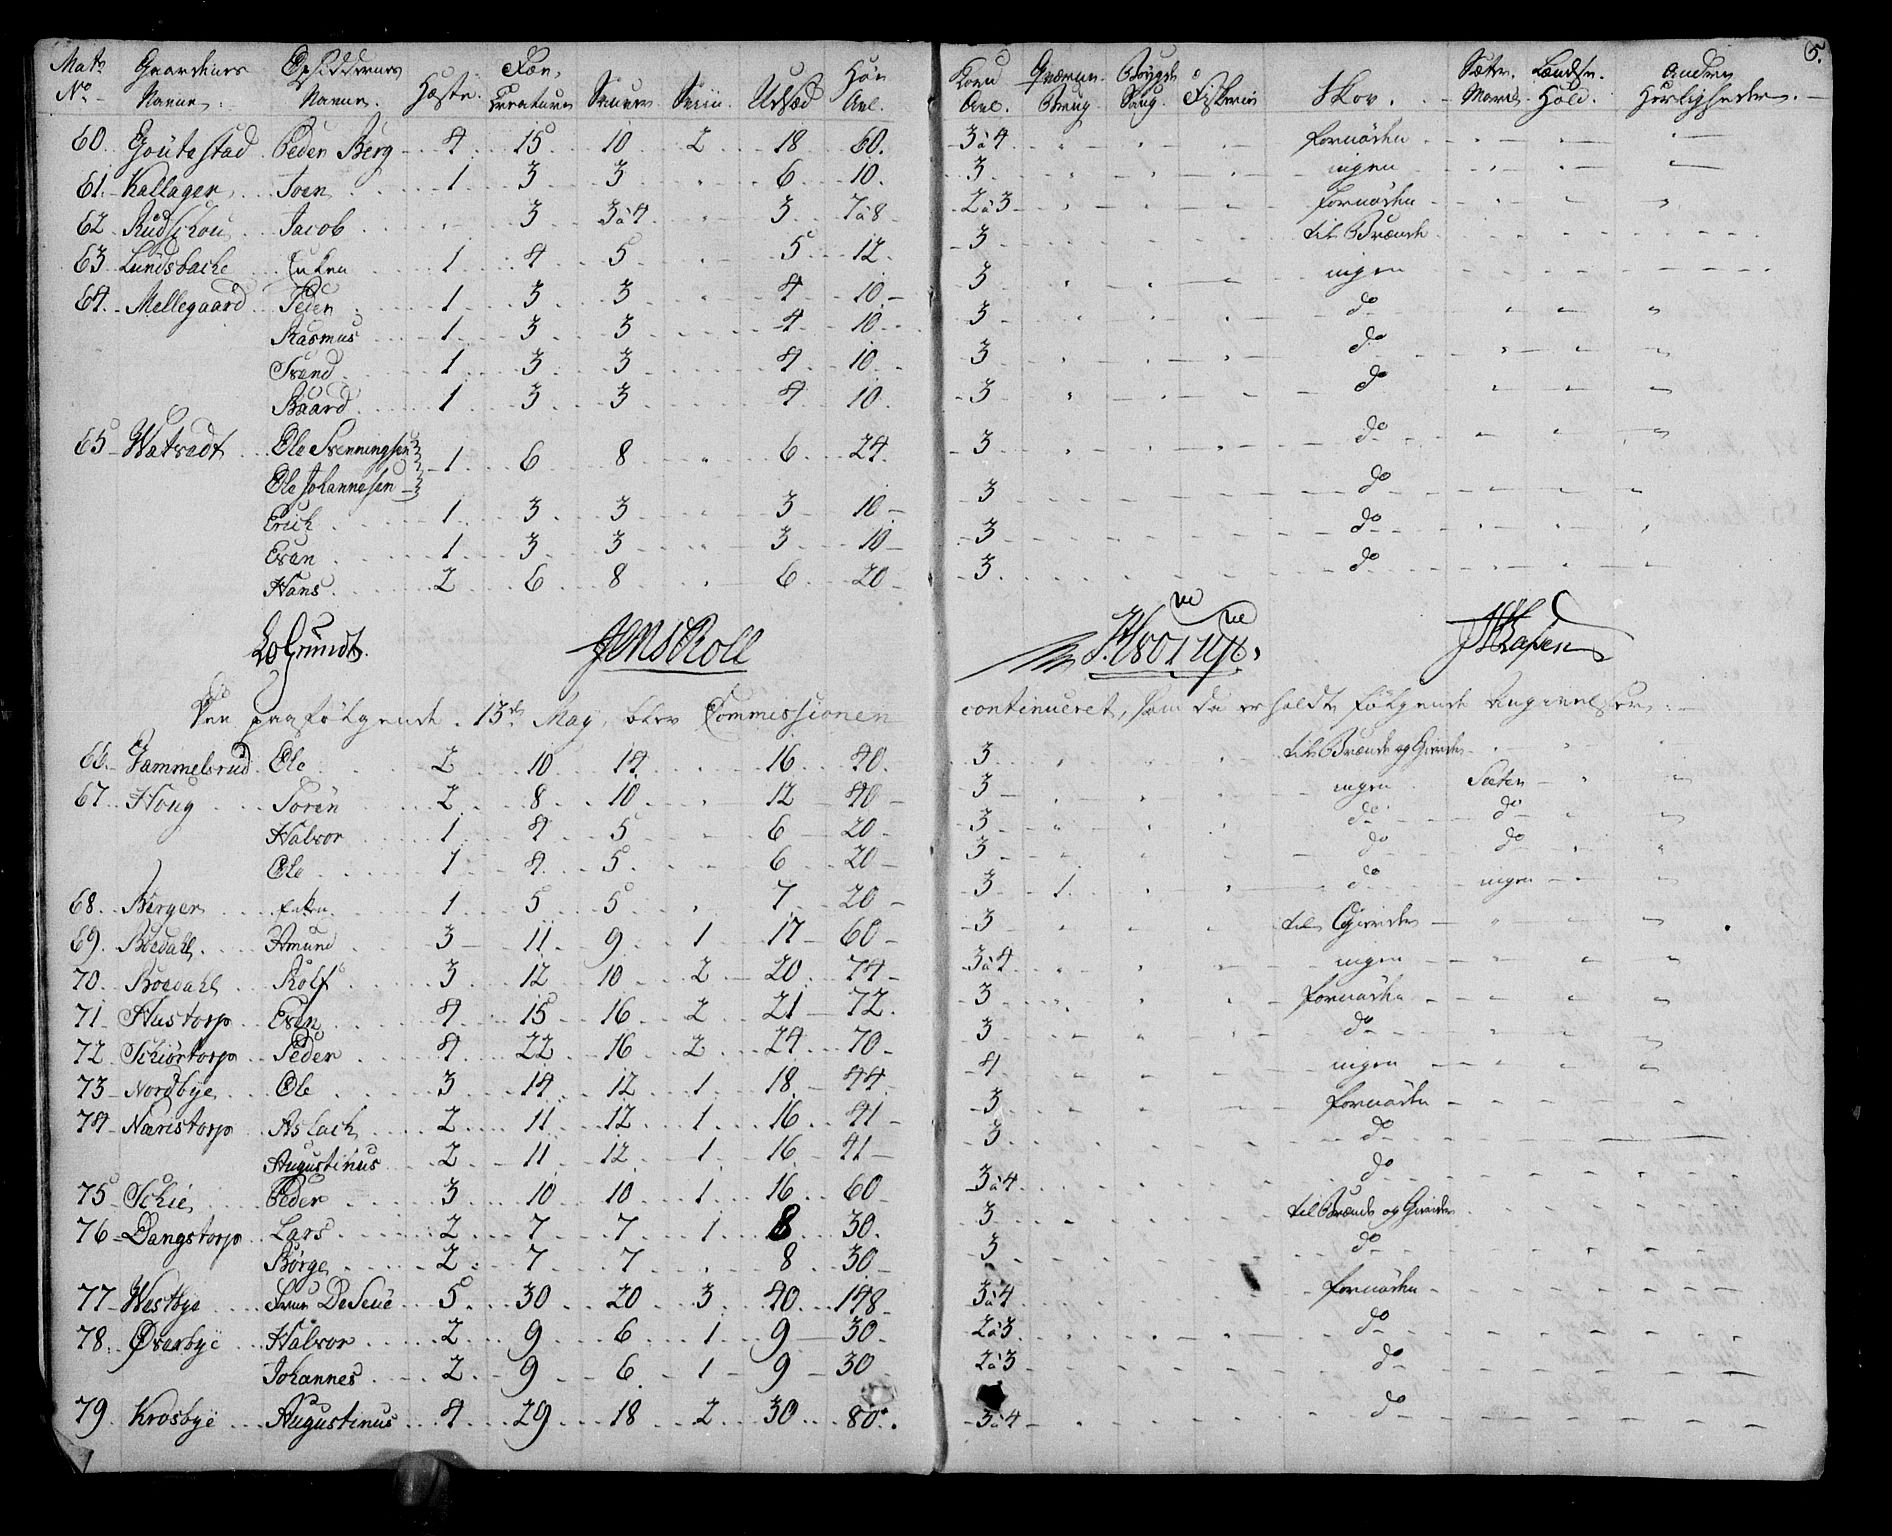 5.
Matr No Gaardenes Navne. Opsiddernes Navne. Heste. Fæe, Creature Sauer Sviin. Udsæd Höe Avl. Korn Avl. Qværne Brug Bøygde Saug. Fiskerie Skov. Sæter Lændse Hold. Andre Herligheder.
60. Goutestad Peder Berg 4 15 10 2 18 60. 3 à 4 fornöden
61. Kallager Joen 1 3 3 6 10. 3 ingen
62. Rudschou Jacob 3 3 à 4 3 7 à 8 2 à 3 fornöden
63. Lundsbache Enken 1 4 5 5 12. 3 til Brænde
64. Mellegaard Peder 1 3 3 4 10 3 ingen
Rasmus 1 3 3 4 10 3 do
Svend 1 3 3 4 10 3 do
Baard 1 3 3 4 10 3 do
65 Watvedt Ole Svenningsen 1 6 8 6 24. 3 do
Ole Johannesen
Erich 1 3 3 3 10 3 do
Even 1 3 3 3 10 3 do
Hans 2 6 8 6 20 3. do
LoGrundt. Jens Roll
Den paafölgende 13de May, blev Commissionen continueret, som da erholdte fölgende Angivelser.
66. Gammelsrud Ole 2 10 14 16 40. 3 til Brænde og Gierder
67. Houg Soren 2 8 10 12 40 3 ingen Sæter
Halvor 1 4 5 6 20 3 do do
Ole 1 4 5 6 20 3 do do
68. Berger Enken 1 5 5 7 20 3 1. do ingen
69. Böedahl Amund 3 11 9 1 17 60 3 til Gierder
70. Böedahl Rolf 3 12 10 2 20 74 3 à 4 ingen
71. Hustorp Even 4 15 16 2 21 72. 3 fornöden
72. Schiörtorp Peder 4 22 16 2 24 70 3 do
73 Nordbye Ole 3 14 12 1 18 44 4 ingen
74 Nærstorp Aslach 2 11 12 1 16 41 3 fornöden
Augustinus 2 11 12 1 16 41 3. do
75 Schie Peder 3 10 10 1 16 60 3 à 4 do
76 Dangstorp Lars 2 7 7 1 8 30. 3 til Brænde og Gierder
Börge 2 7 7 8 30 3 do
77 Westbye Frue DeSeue 5 30 20 3 40 148 3 à 4 fornöden
78. Överbye Halvor 2 9 6 1 9 30 2 à 3 do
Johannes 2 9 6 1 9 30 2 à 3 do
79. Krosbye Augustinus 4 29 18 2 30 80. 3 à 4 do